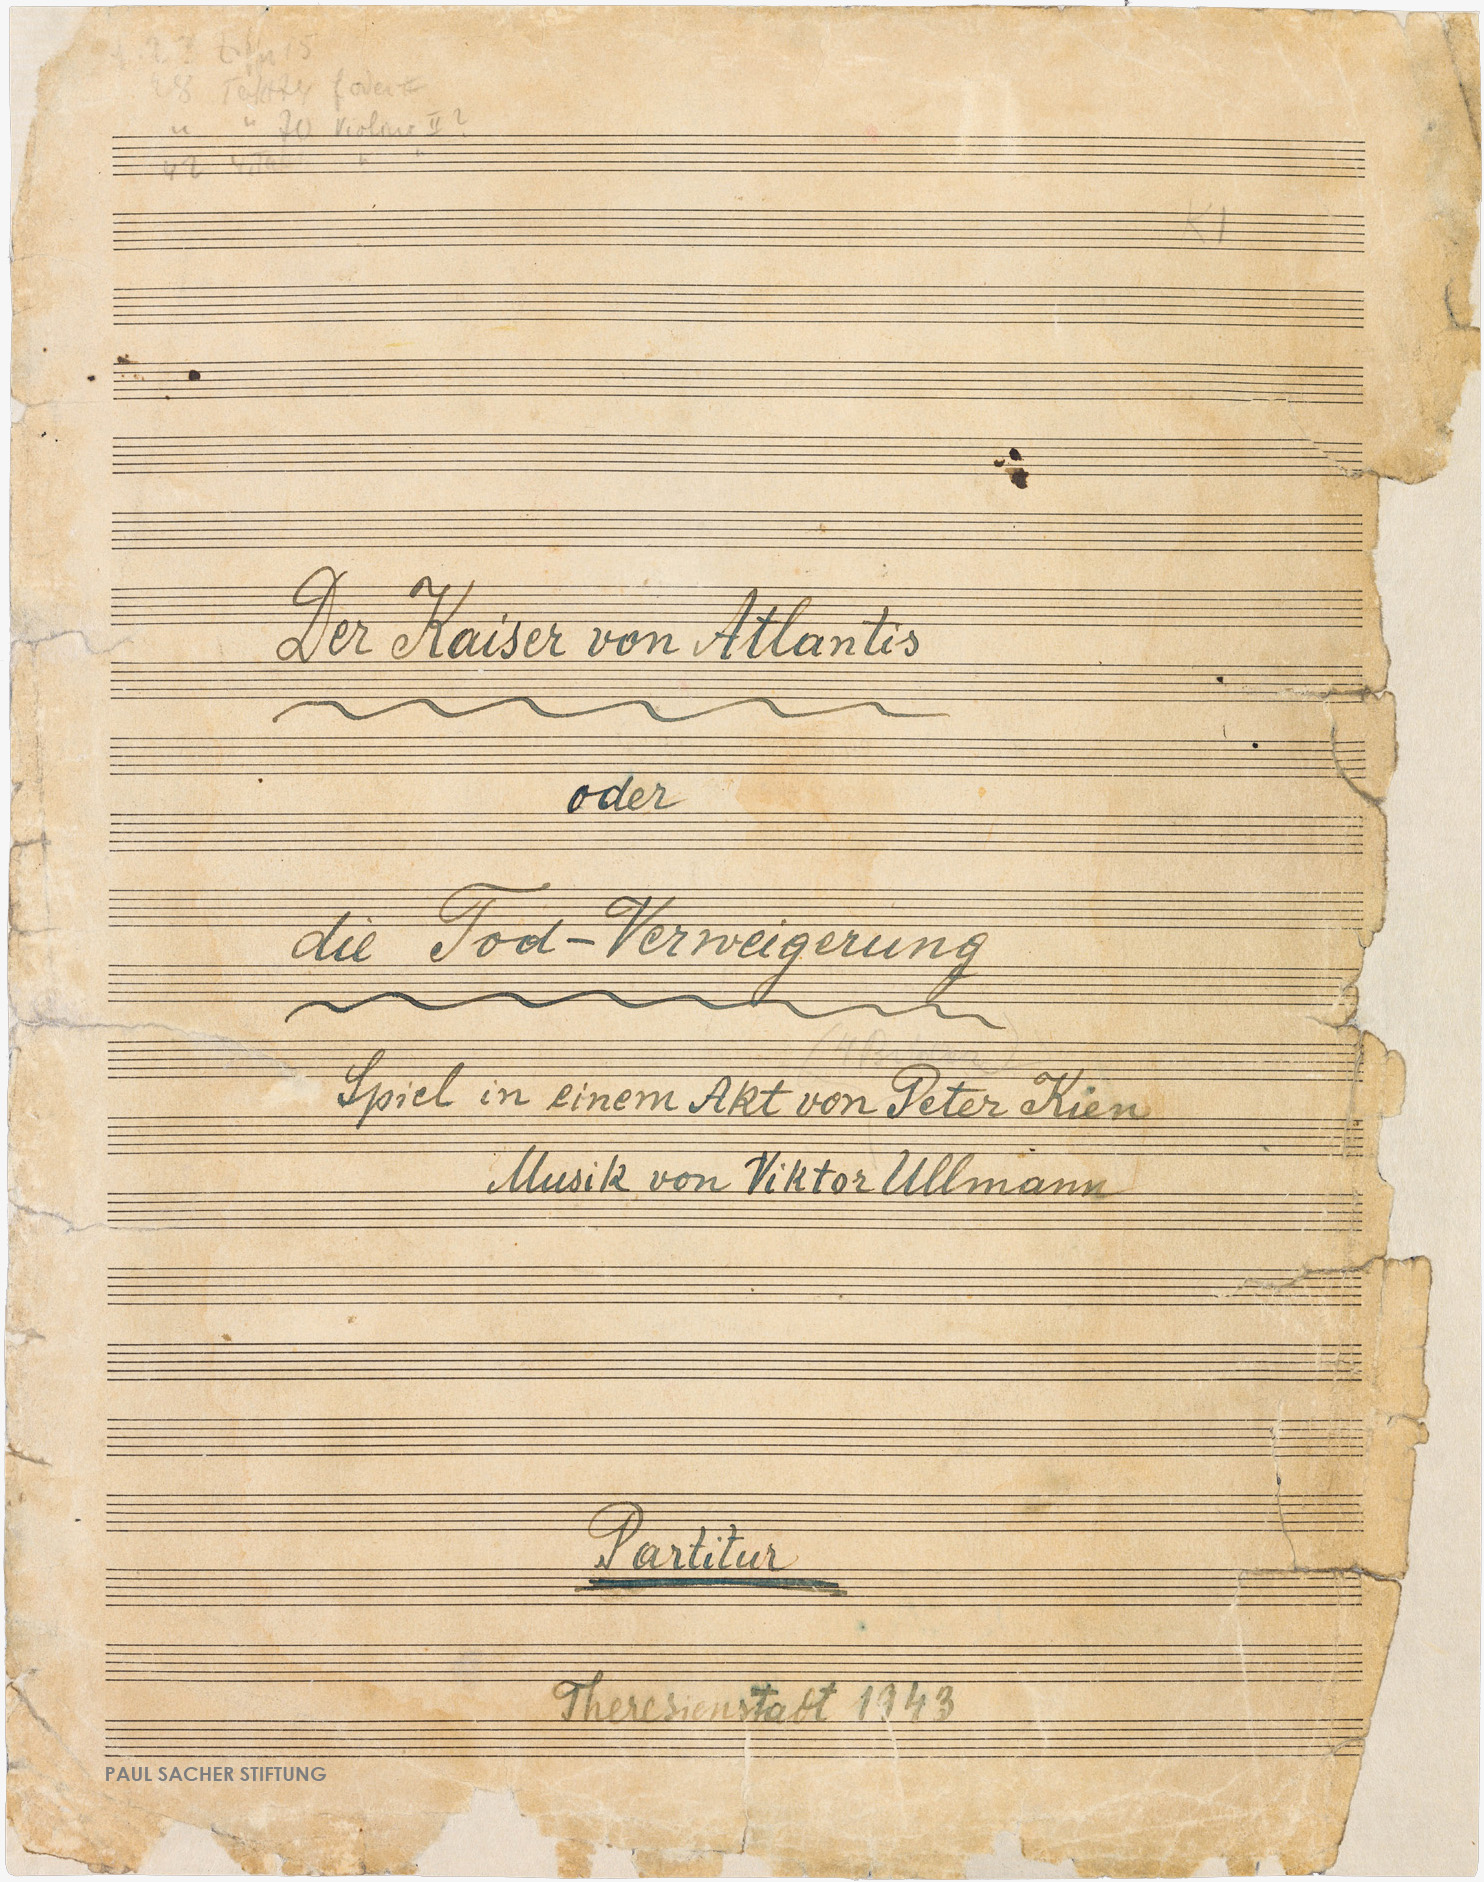 Violine II?
K1
Der Kaiser von Atlantis
oder
die Tod-Verweigerung
Spiel in einem Akt von Peter Kien
Musik von Viktor Ullmann
Partitur
Theresienstadt 1943
PAUL SACHER STIFTUNG